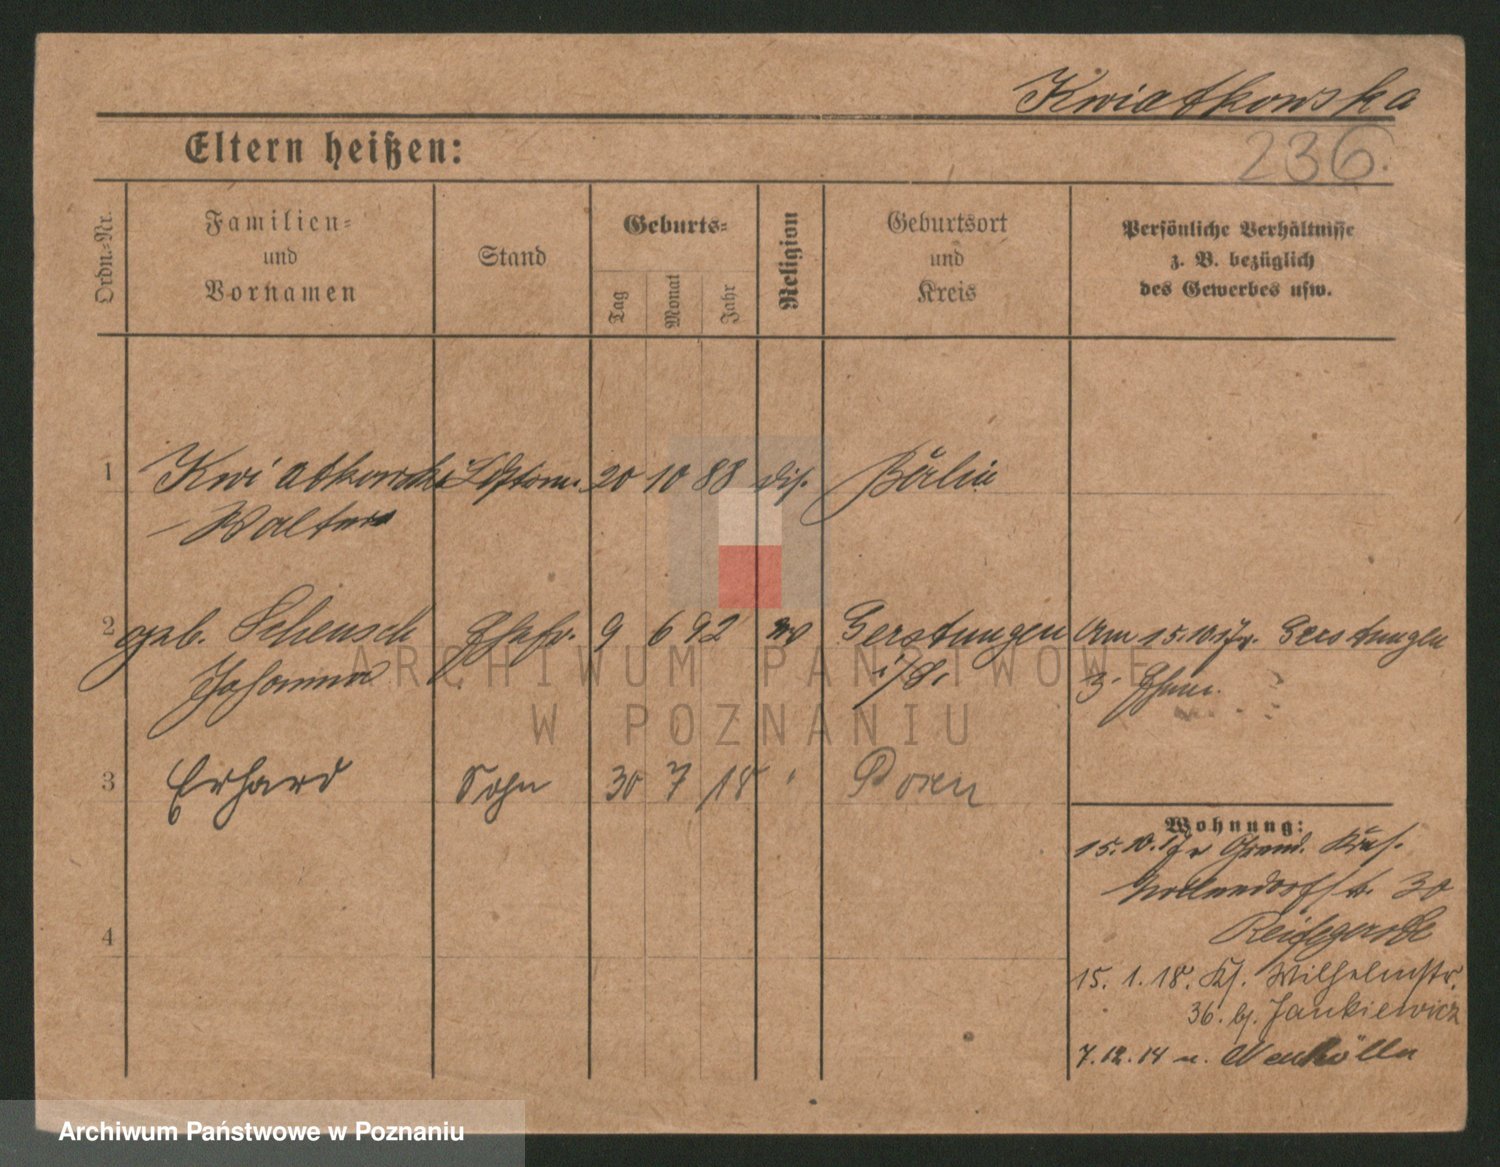 Kwiatkowska
Eltern heißen:
236.
Ordn.-Nr.
Familien-
und
Vornamen
Stand
Geburts-
Tag
Monat
Jahr
Religion
Geburtsort
und
Kreis
Persönliche Verhältnisse
z. B. bezüglich
des Gewerbes usw.
1
Kwiatkowski 20 10 88 dis. Berlin
Walter
2
geb. Schensch Ehefr. 9 6 92 ev Gerstungen
Johanna
Am 15.10.17 Gerstungen
3
Erhard Sohn 30 7 18 " Posen
4
Wohnung:
15.10.17
Nollendorfstr. 30
15. 1. 18. Wilhelmstr.
36. bj. Jankiewicz
7.12.14 n. Neukölln
ARCHIWUM PAŃSTWOWE
W POZNANIU
Archiwum Państwowe w Poznaniu